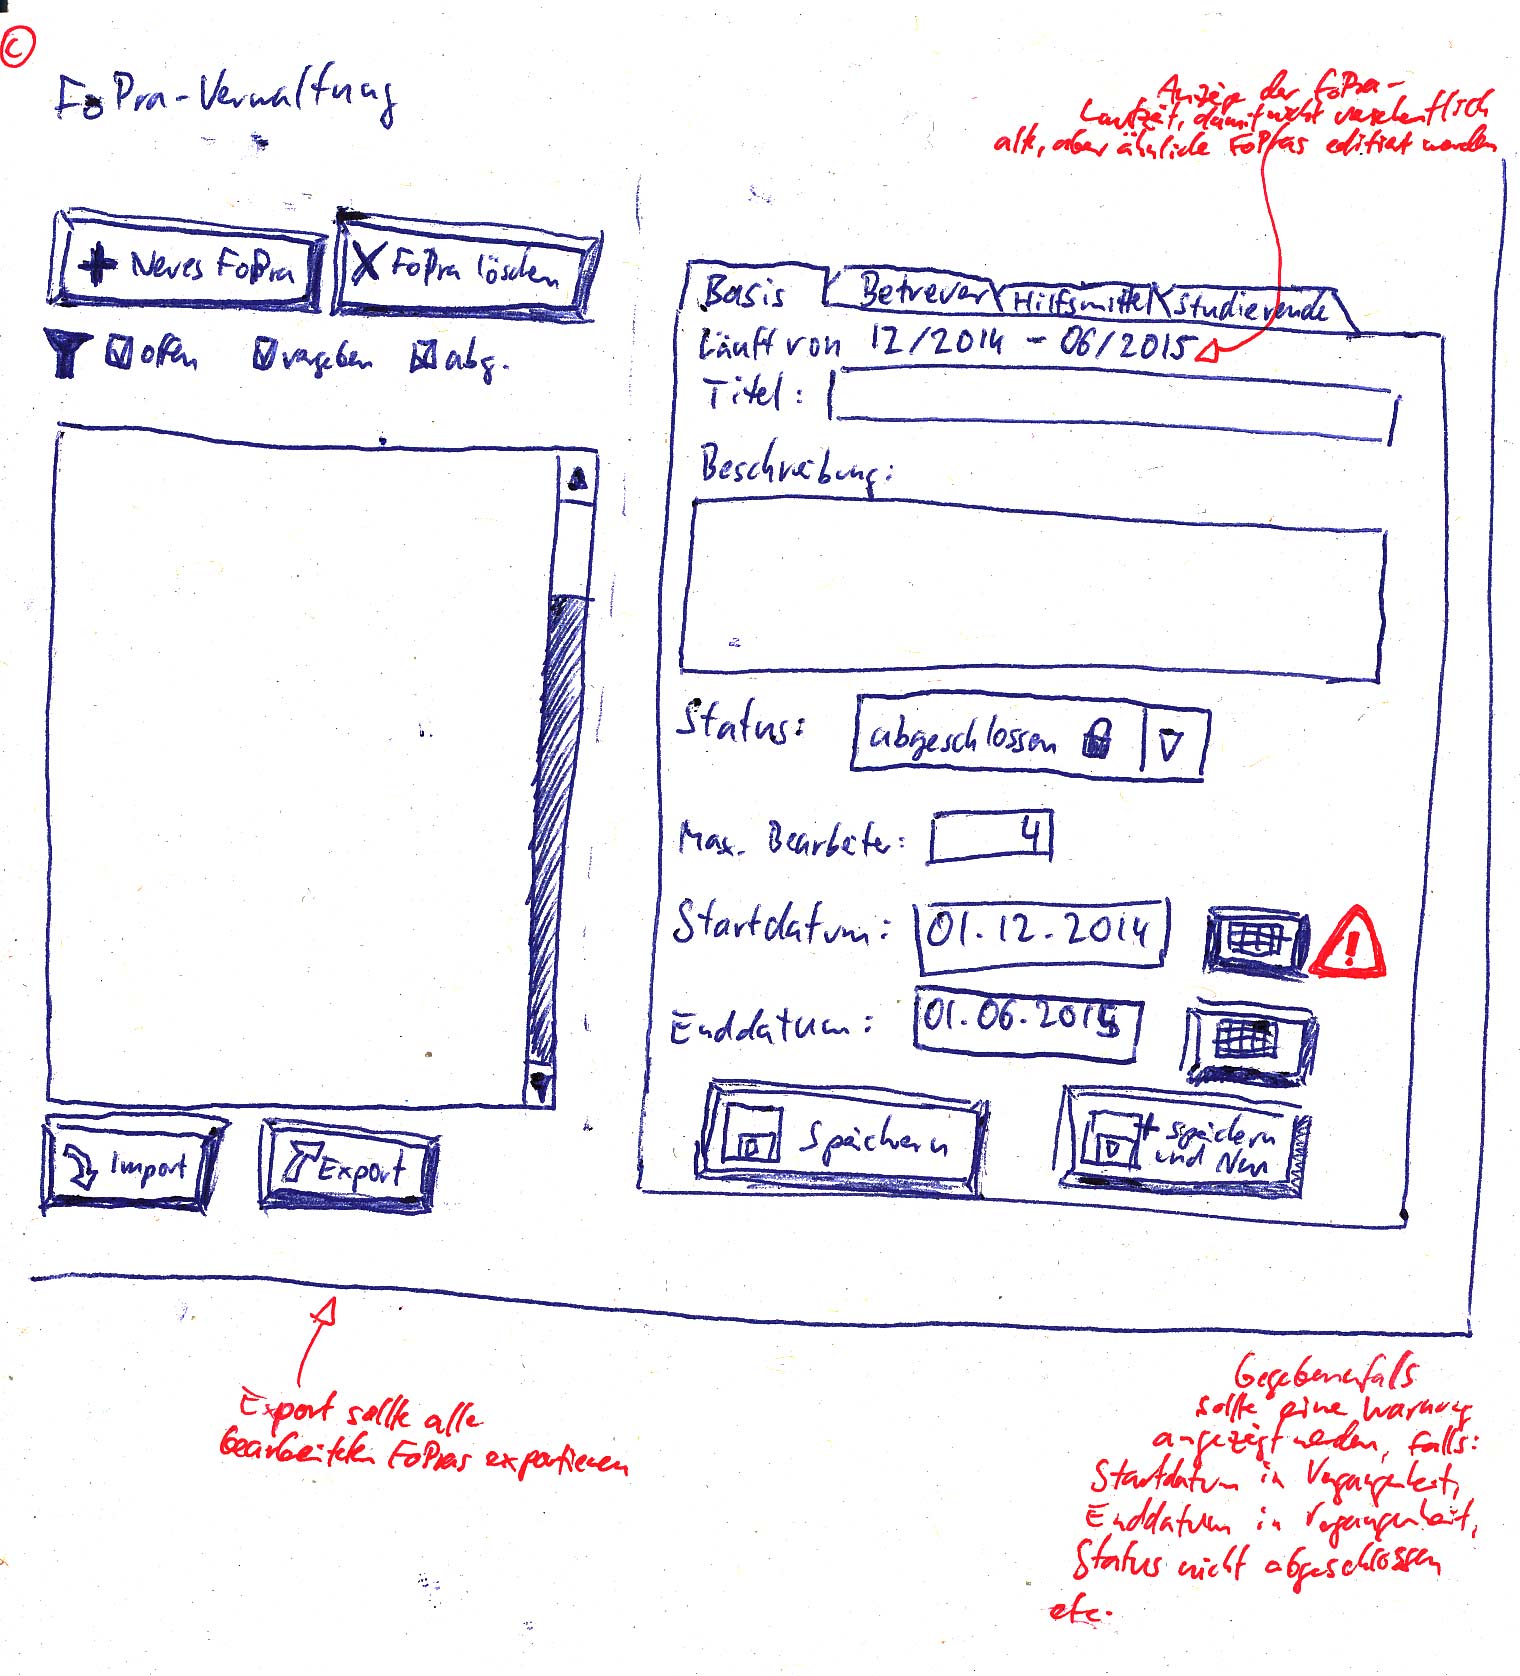 C
FoPra-Verwaltung
Anzeige der FoPra-
Laufzeit, damit nicht versehentlich
alte, aber ähnliche FoPras editiert werden
+ Neues FoPra
X FoPra löschen
offen vergeben abg.
Basis Betreuer Hilfsmittel Studierende
Läuft von 12/2014 - 06/2015
Titel:
Beschreibung:
Status: abgeschlossen
Max. Bearbeiter: 4
Startdatum: 01.12.2014 !
Enddatum: 01.06.2015
Speichern
+ Speichern
und Neu
Import
Export
Export sollte alle
bearbeiteten FoPras exportieren
Gegebenenfalls
sollte eine Warnung
angezeigt werden, falls:
Startdatum in Vergangenheit,
Enddatum in Vergangenheit,
Status nicht abgeschlossen
etc.